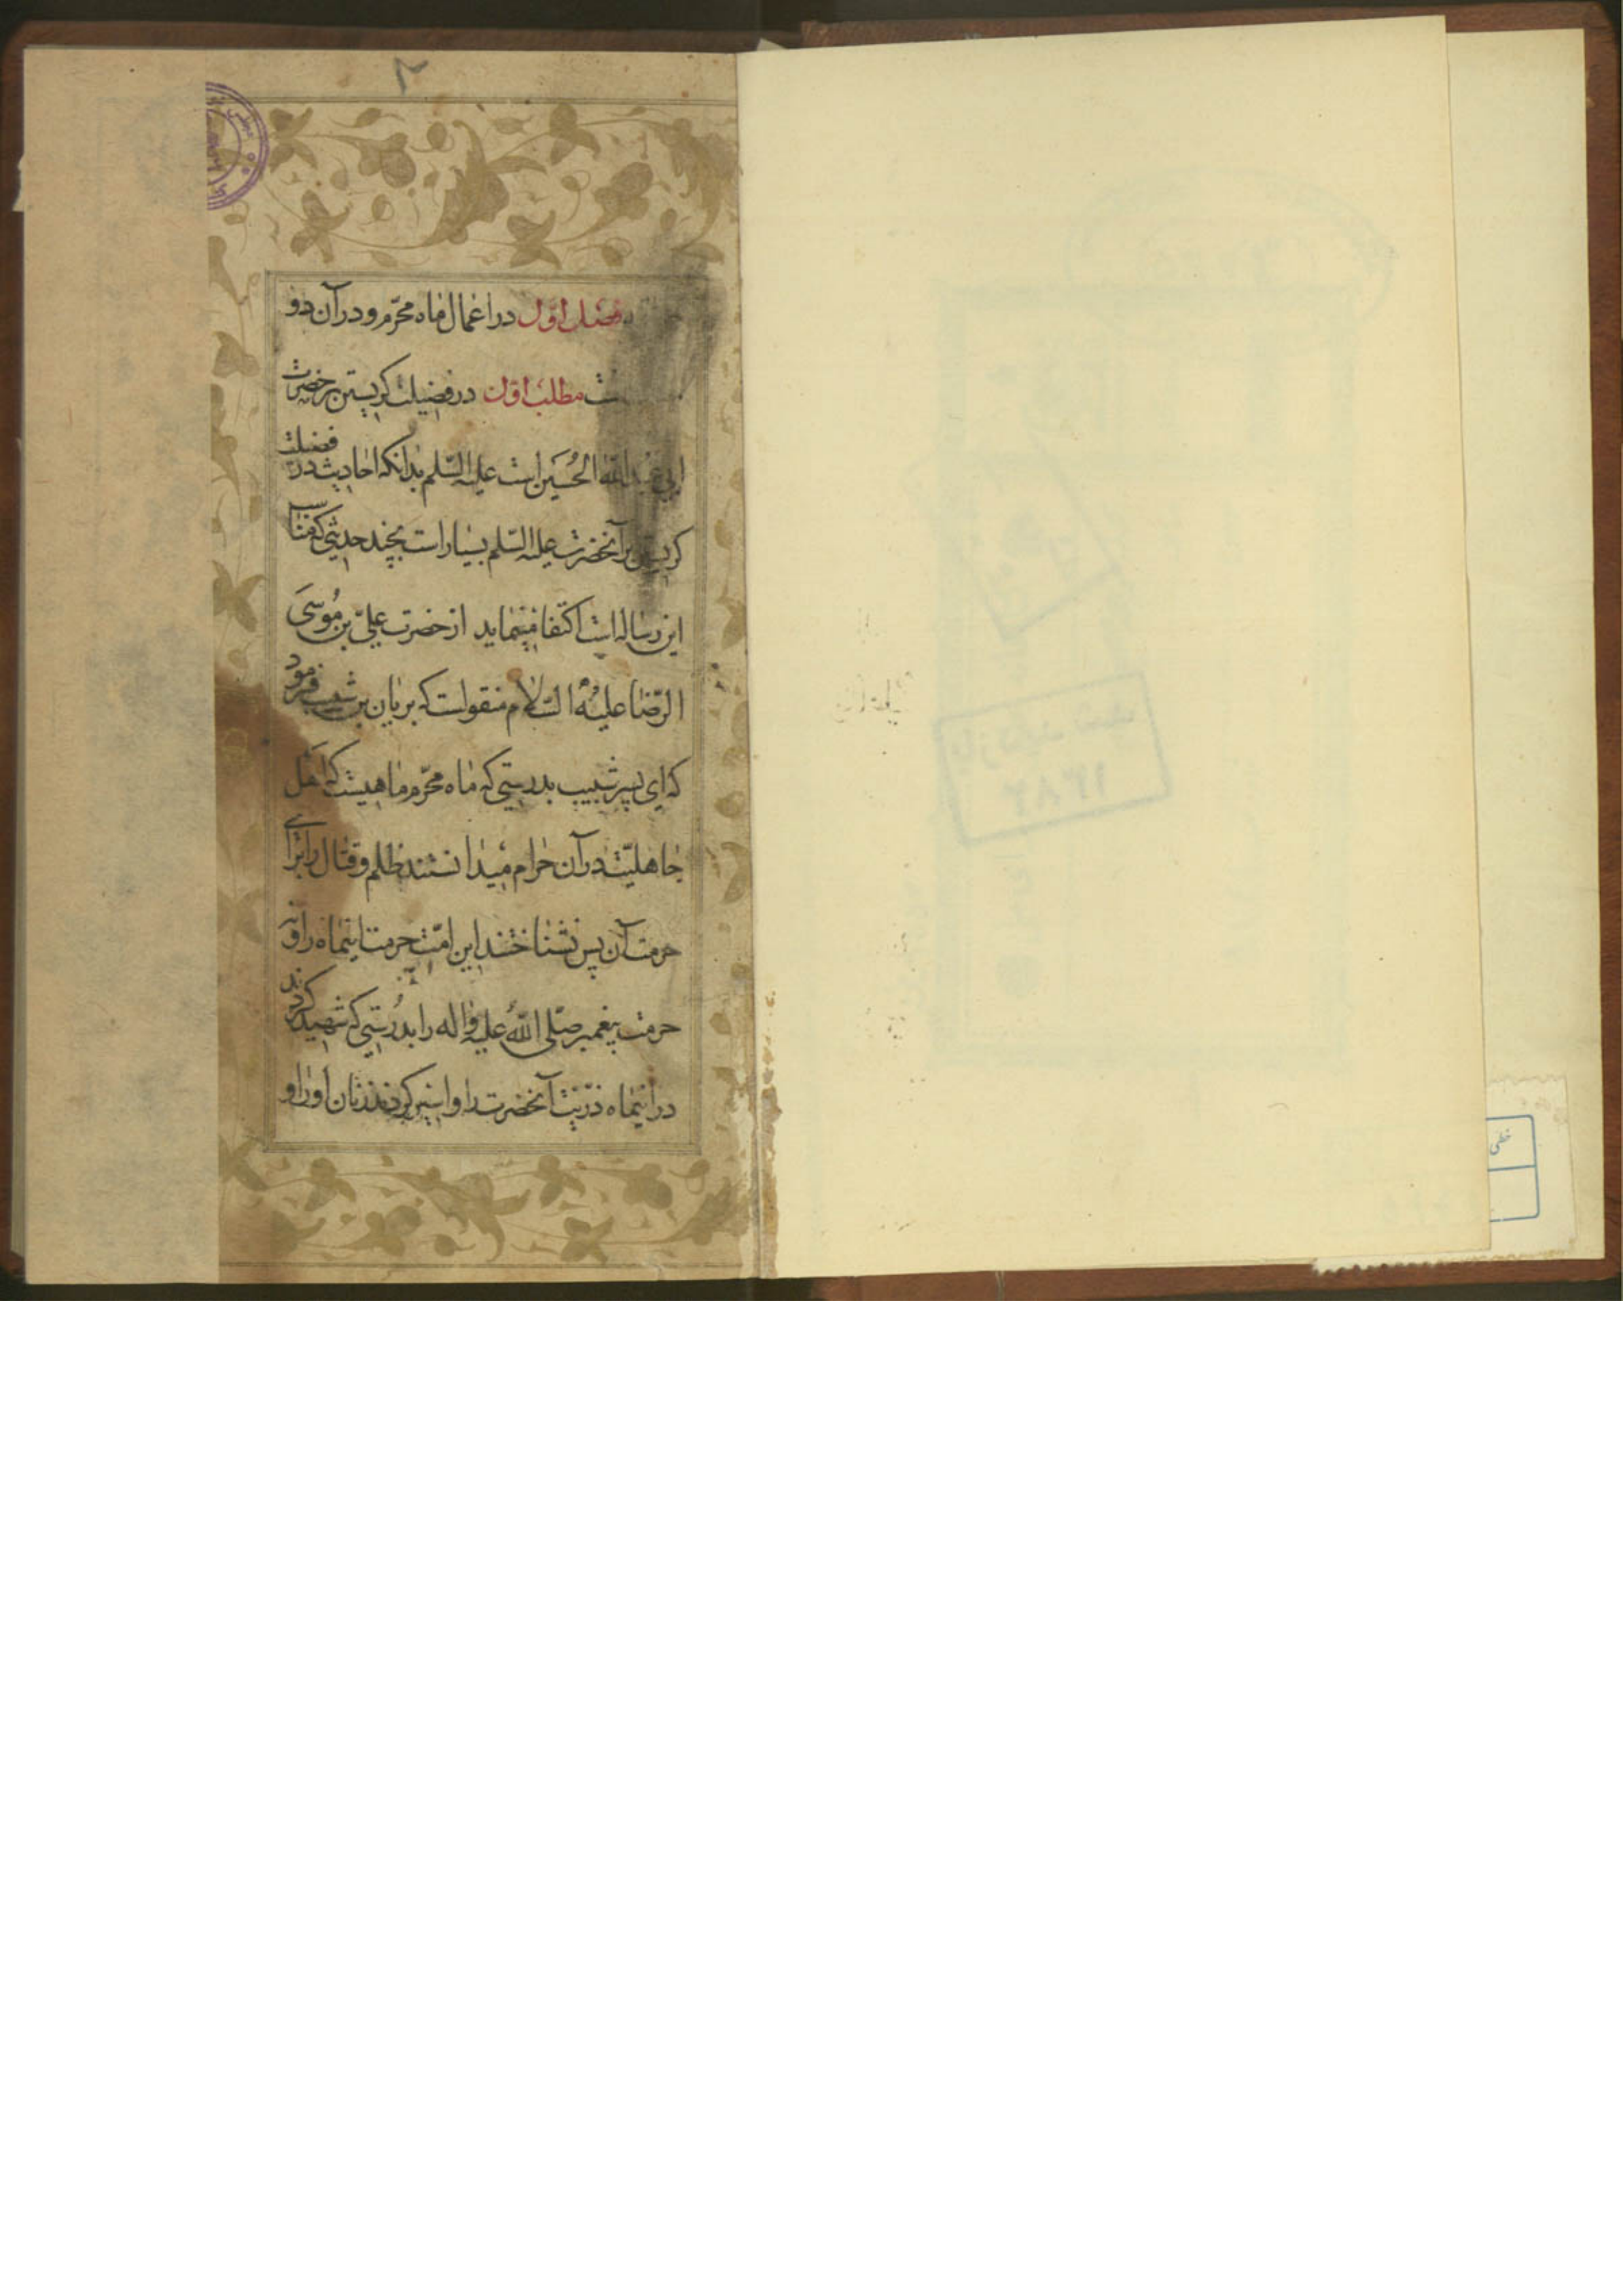 ۲
فصل اوّل در اعمال ماه محرّم و در آن دو
مطلب اوّل در فضیلت کریستن بر حضرت
ابی عبدالله الحُسَین است علیه السّلم بدانکه احادیث در فضیلت
کریستن بر آنحضرت علیه السّلم بسیار است بچند حدیثی که مناسب
این رساله است اکتفا مینماید از حضرت علیّ بن مُوسَی
الرّضا علیهُ السّلام منقولست که بریان بن شبیب فرمود
که ای پسر شبیب بدرستی که ماه محرّم ماهیست که اهل
جاهلیّت در آن حرام میدانستند ظلم و قتال را برای
حرمت آن پس نشناختند این امّت حرمت اینماه را و نه
حرمت پیغمبر صلّی اللهُ علیه و اله را بدُرستی که شهید کردند
در اینماه ذرّیّت آنحضرت را و اسیر کردند زنان او را و
بازدید شد
۱۳۸۲
خطی